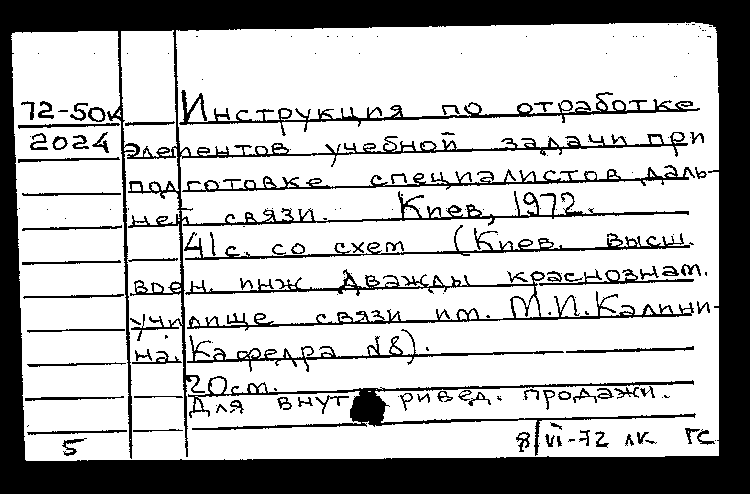 72-50к Инструкция по отработке
2024 элементов учебной задачи при
подготовке специалистов даль-
ней связи. Киев, 1972.
41с. со схем (Киев. высш.
воен. инж. дважды краснознам.
училище связи им. М.И.Калини-
на. Кафедра №8).
20см.
Для внут ривед. продажи.
5 8/VI-72 лк ГС